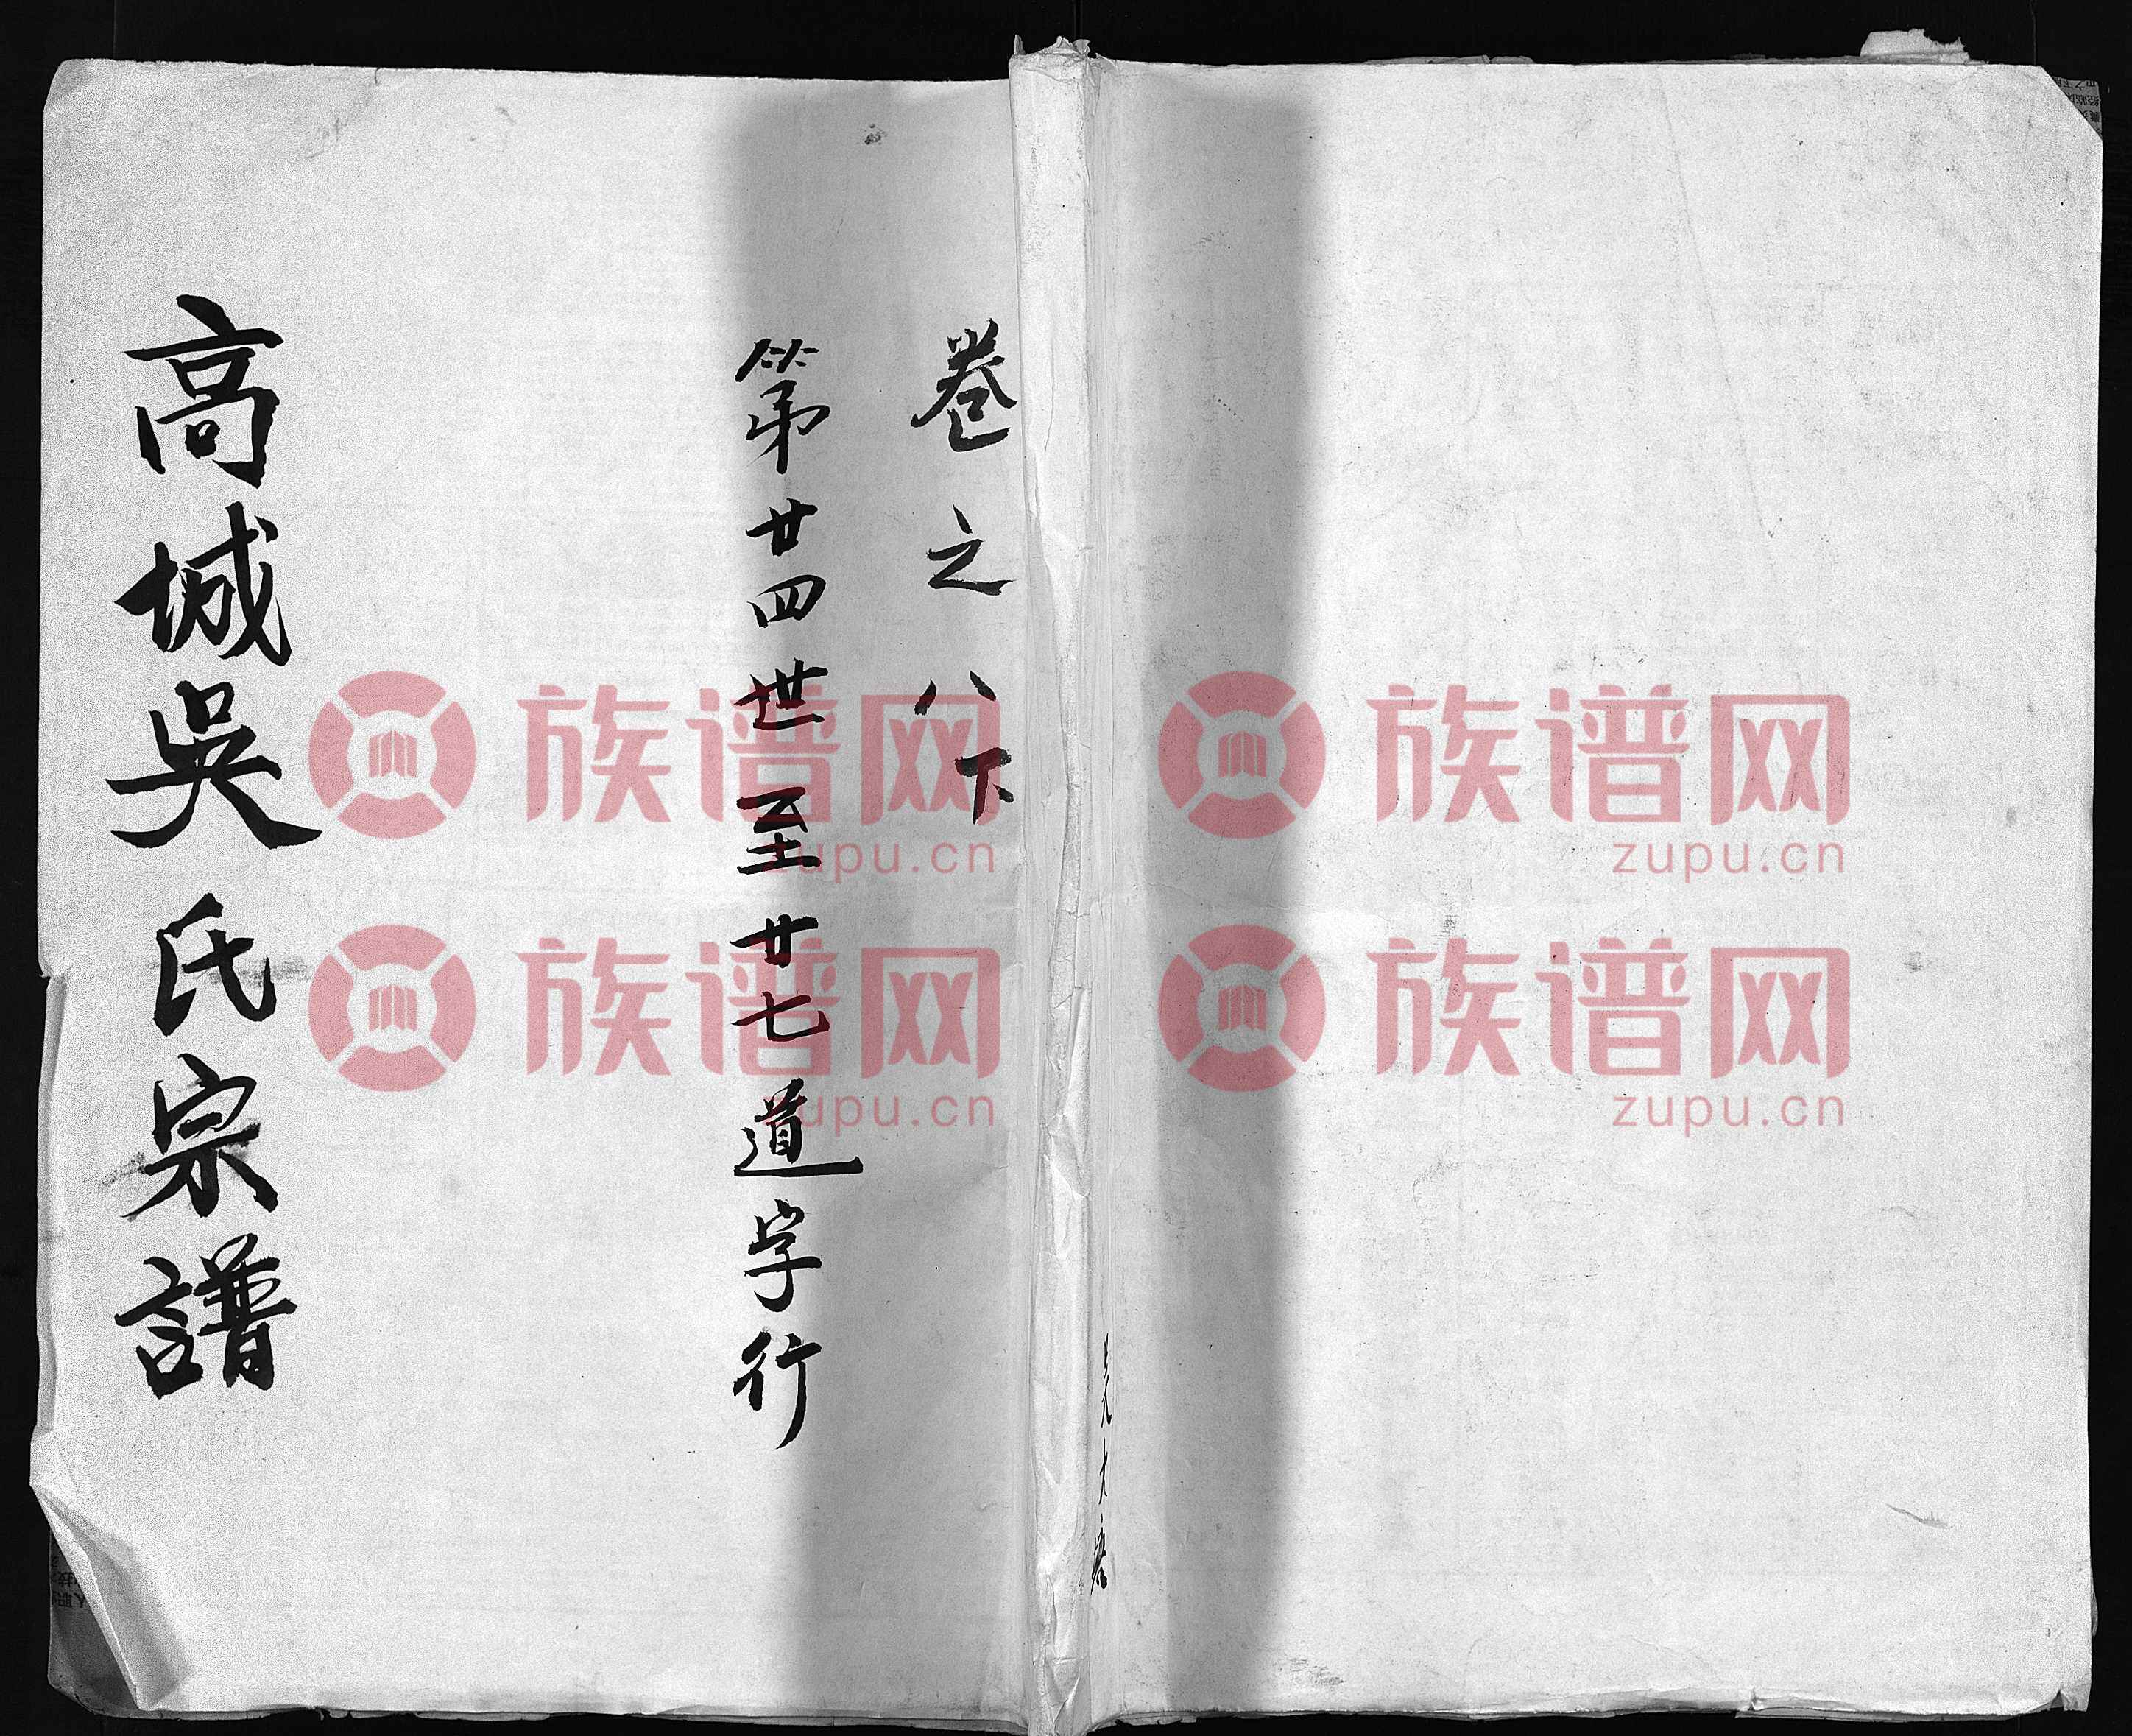 卷之八下
第廿四世至廿七道字行
高城吳氏宗譜
族谱网
zupu.cn
族谱网
zupu.cn
族谱网
zupu.cn
族谱网
zupu.cn